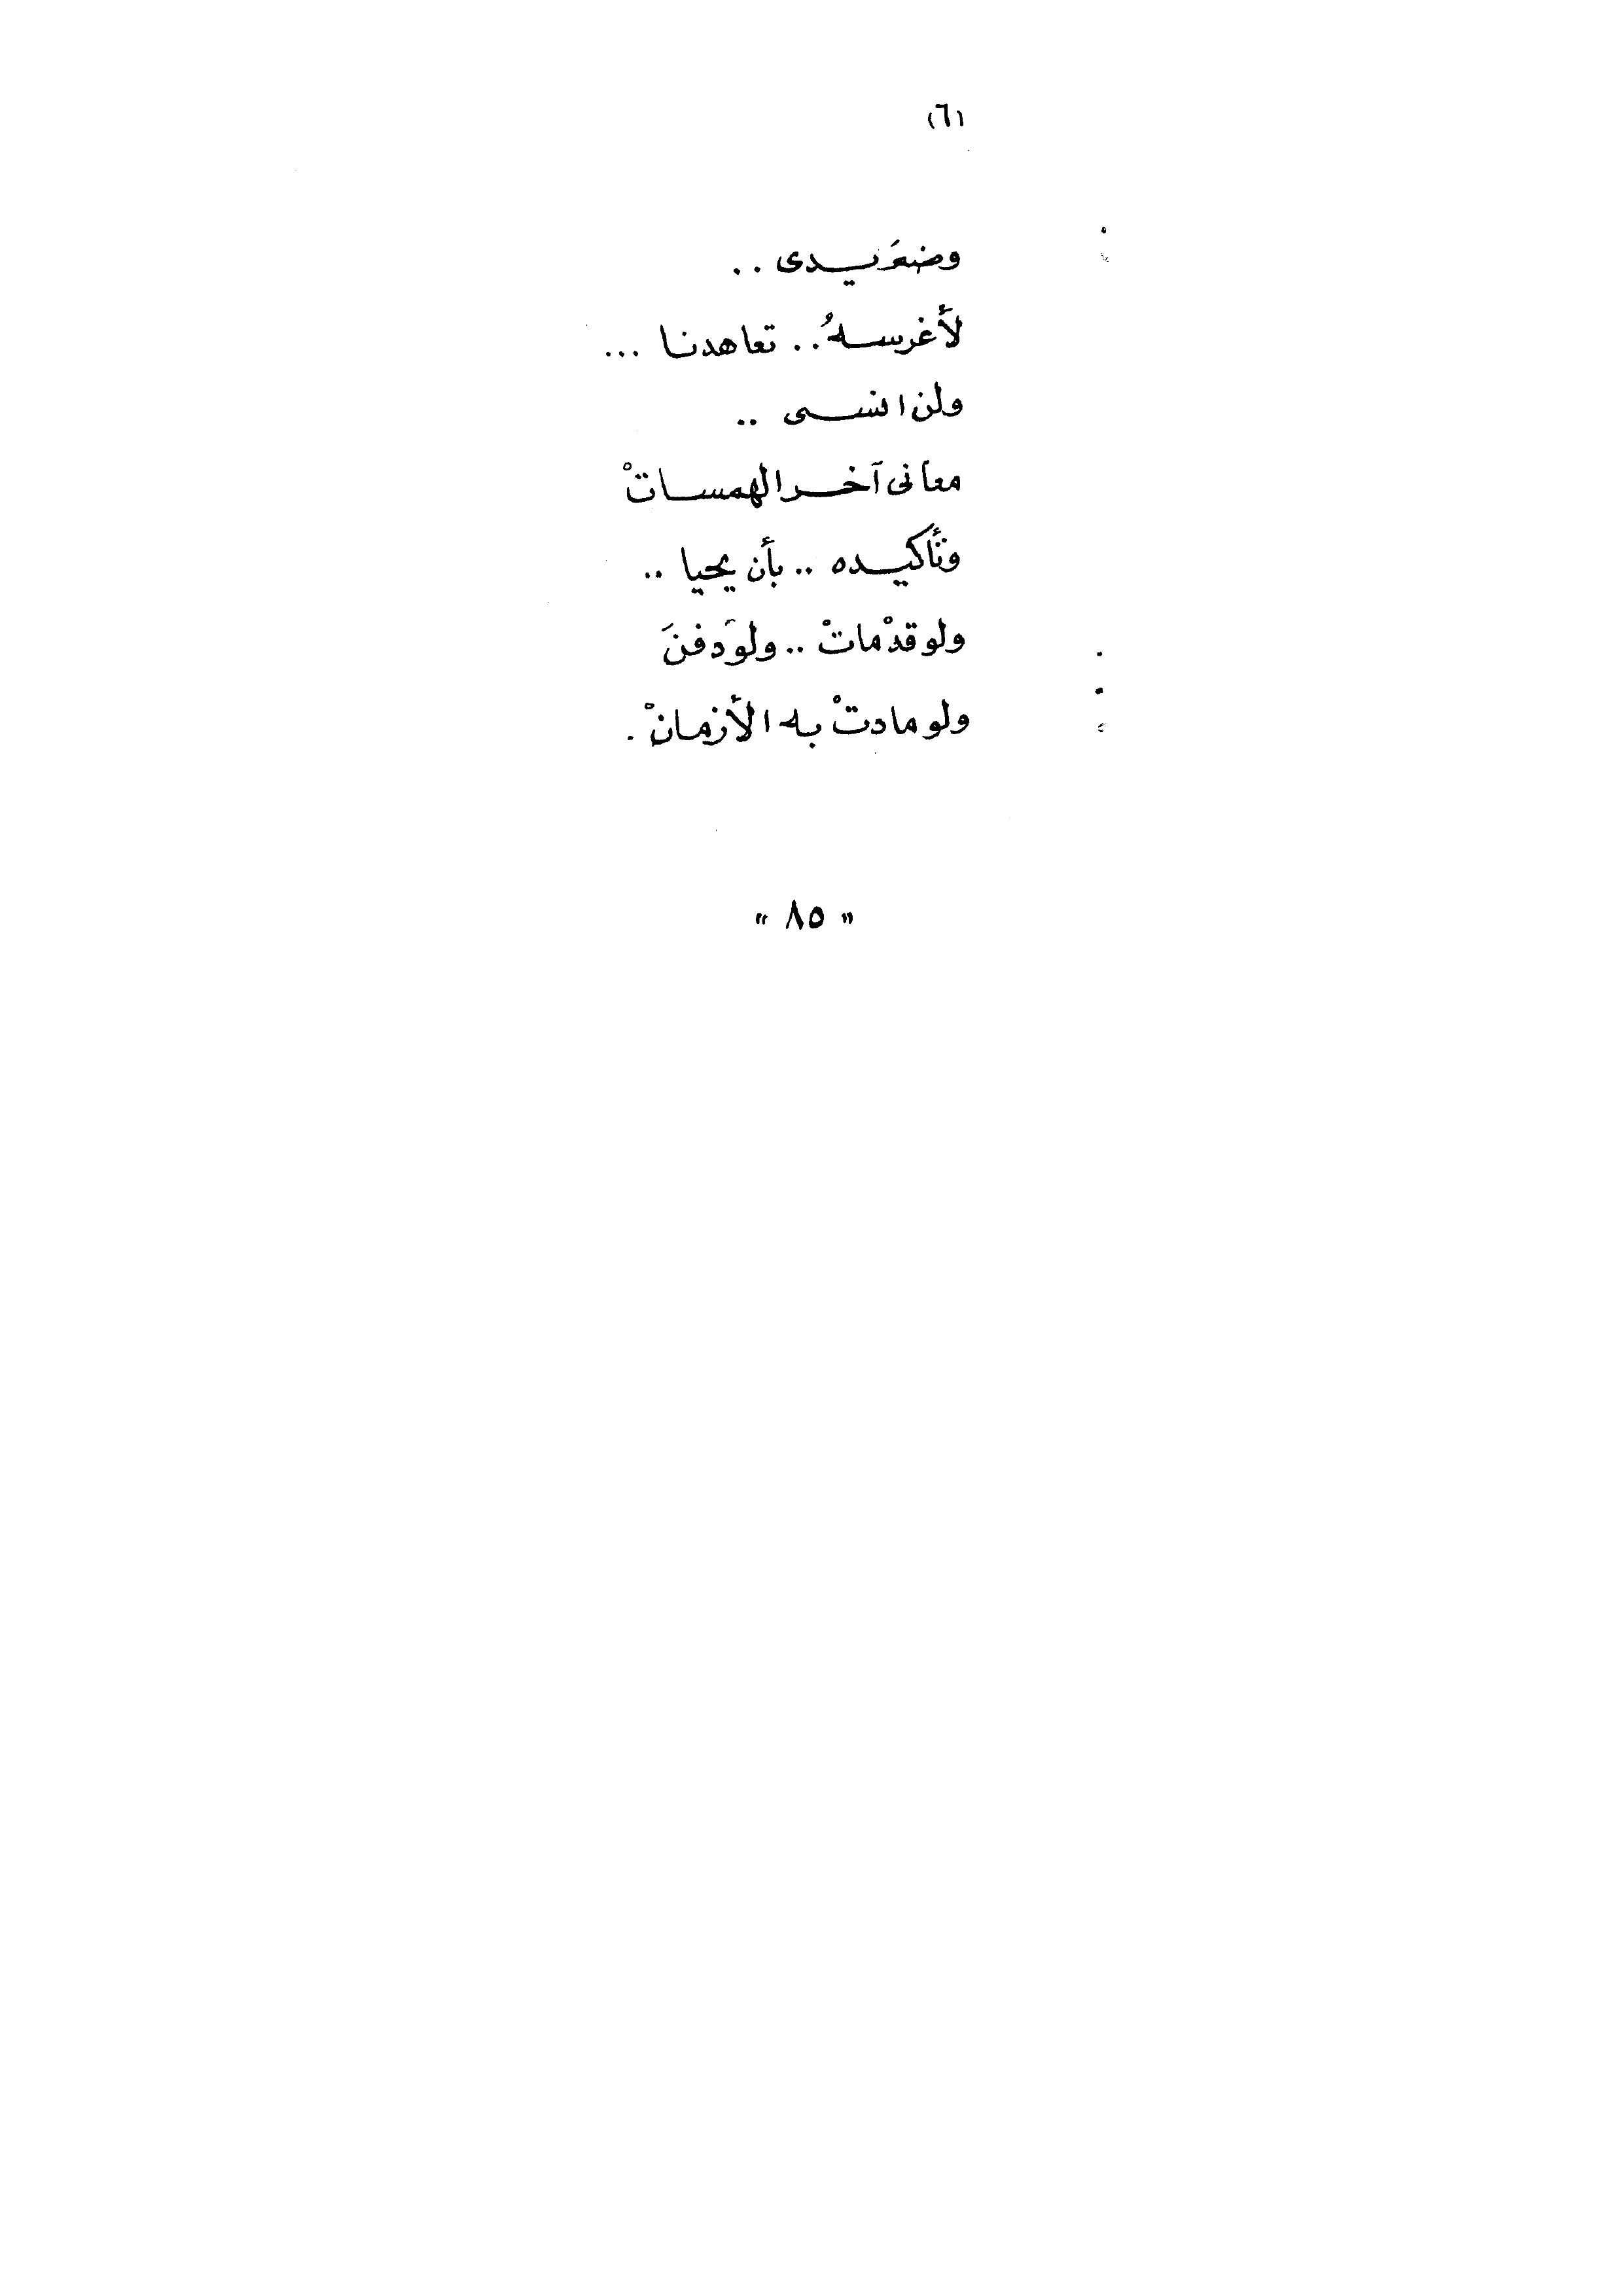 (٦)
وضعَ يدى ..
لأغرسهُ .. تعاهدنا ...
ولن انسى ..
معانى آخر الهمساتْ
وتأكيده .. بأن يحيا ..
ولو قدْ ماتْ .. ولوَ دفنَ
ولو مادتْ به الأزمانْ .
« ٨٥ »